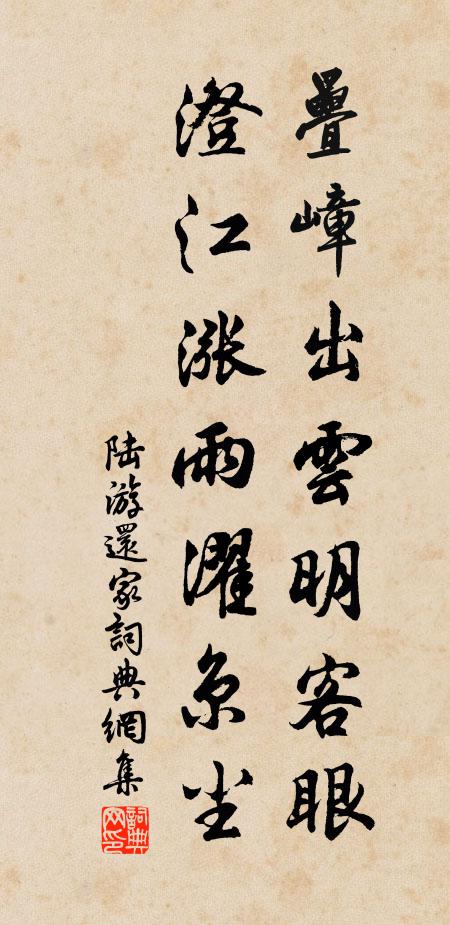 疊嶂出雲明客眼
澄江漲雨濯京尘
陸游還家詞典網集
詞典网印